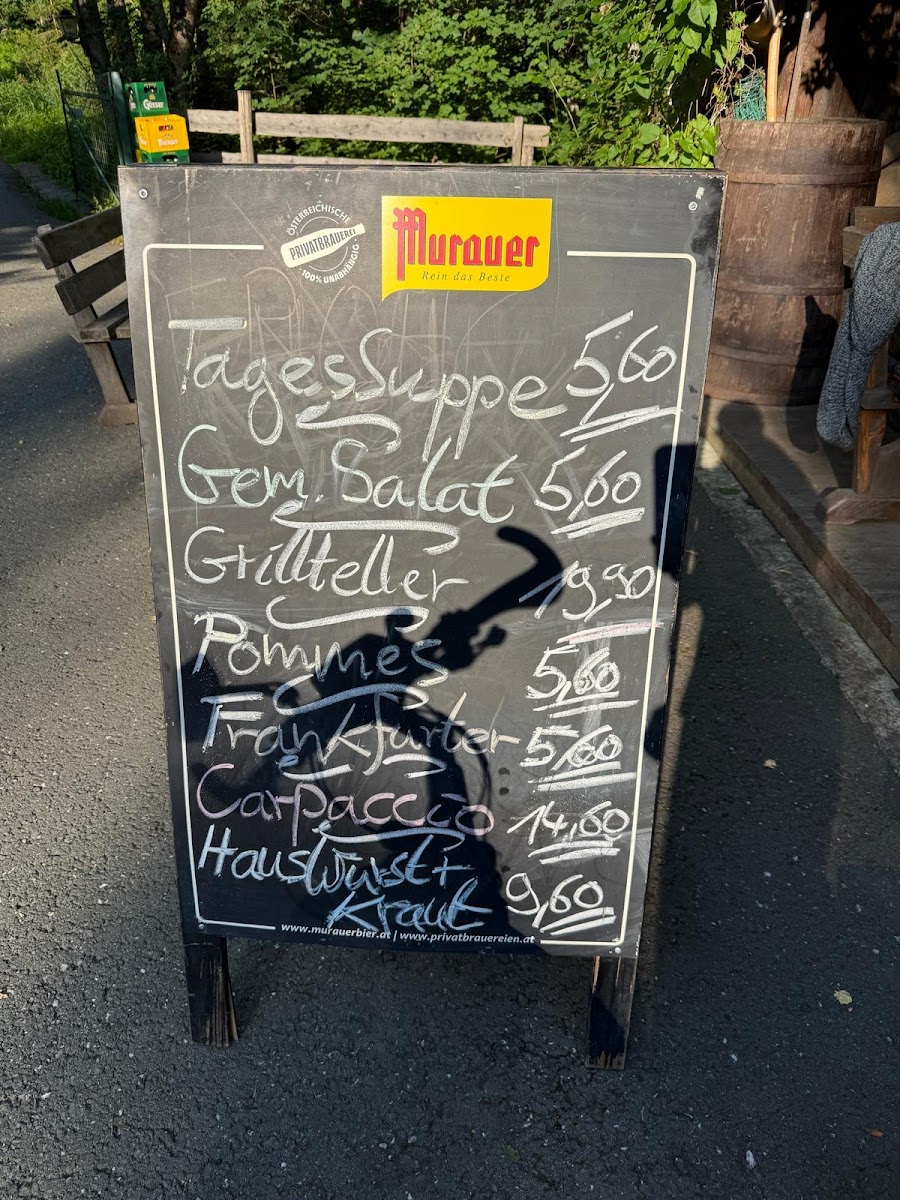 Gösser
Murauer
ÖSTERREICHISCHE
PRIVATBRAUEREI
· 100% UNABHÄNGIG ·
Murauer
Rein das Beste
TagesSuppe 5,60
Gem. Salat 5,60
Grillteller 19,90
Pommes 5,60
Frankfurter 5,60
Carpaccio 14,60
HausWürst +
Kraut 9,60
www.murauerbier.at | www.privatbrauereien.at